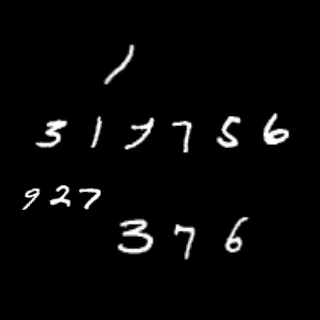 1
319756
927
376